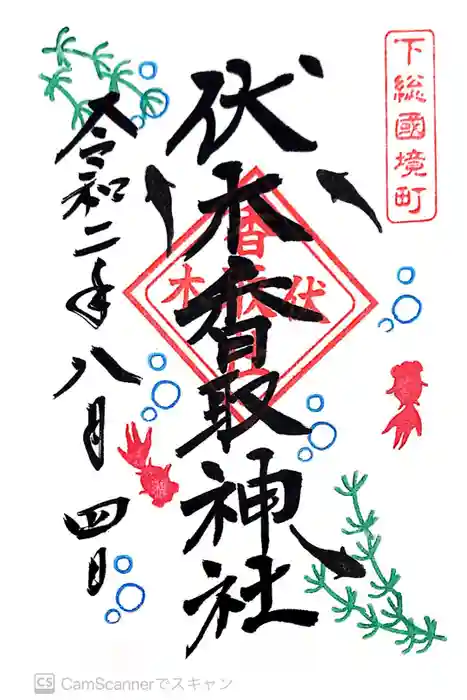 下総國境町
伏木香取神社
令和二年八月四日
伏木
香取
CS CamScannerでスキャン